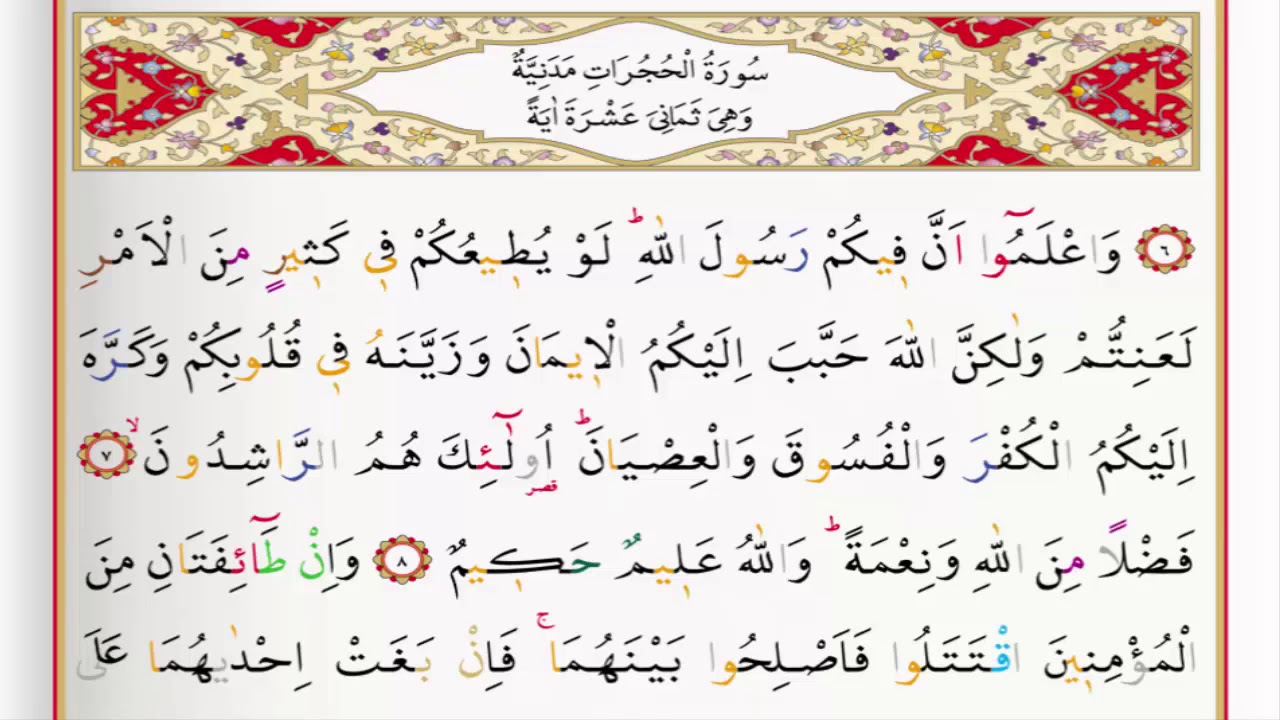 سُورَةُ الْحُجُرَاتِ مَدَنِيَّةٌ
وَهِيَ ثَمَانِيَ عَشْرَةَ اٰيَةً
٦ وَاعْلَمُٓوا اَنَّ فِيكُمْ رَسُولَ اللّٰهِۜ لَوْ يُطِيعُكُمْ فِي كَثِيرٍ مِنَ الْاَمْرِ
لَعَنِتُّمْ وَلٰكِنَّ اللّٰهَ حَبَّبَ اِلَيْكُمُ الْاِيمَانَ وَزَيَّنَهُ فِي قُلُوبِكُمْ وَكَرَّهَ
اِلَيْكُمُ الْكُفْرَ وَالْفُسُوقَ وَالْعِصْيَانَۜ اُو۬لٰٓئِكَ هُمُ الرَّاشِدُونَۙ ٧
قصر
فَضْلًا مِنَ اللّٰهِ وَنِعْمَةًۜ وَاللّٰهُ عَلِيمٌ حَكِيمٌ ٨ وَاِنْ طَٓائِفَتَانِ مِنَ
الْمُؤْمِنِينَ اقْتَتَلُوا فَاَصْلِحُوا بَيْنَهُمَاۚ فَاِنْ بَغَتْ اِحْدٰيهُمَا عَلَى